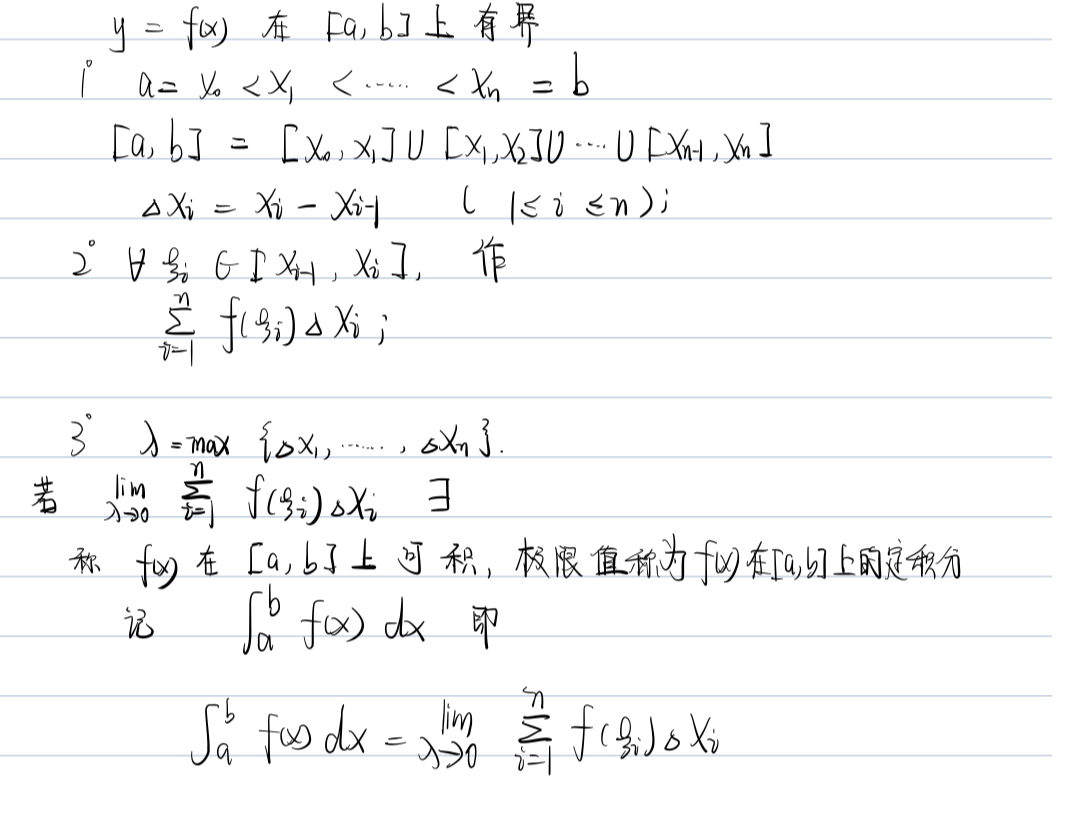 y = f(x) 在 [a, b] 上有界
1° a = x₀ < x₁ < ····· < xₙ = b
[a, b] = [x₀, x₁] ∪ [x₁, x₂] ∪ ···· ∪ [xₙ₋₁, xₙ]
Δxᵢ = xᵢ - xᵢ₋₁ ( 1 ≤ i ≤ n );
2° ∀ ξᵢ ∈ [xᵢ₋₁, xᵢ], 作
∑ᵢ₌₁ⁿ f(ξᵢ) Δxᵢ ;
3° λ = max {Δx₁, ······, Δxₙ}.
若 lim_{λ→0} ∑ᵢ₌₁ⁿ f(ξᵢ) Δxᵢ ∃
称 f(x) 在 [a, b] 上可积, 极限值称为 f(x) 在 [a, b] 上的定积分
记 ∫ₐᵇ f(x) dx 即
∫ₐᵇ f(x) dx = lim_{λ→0} ∑ᵢ₌₁ⁿ f(ξᵢ) Δxᵢ